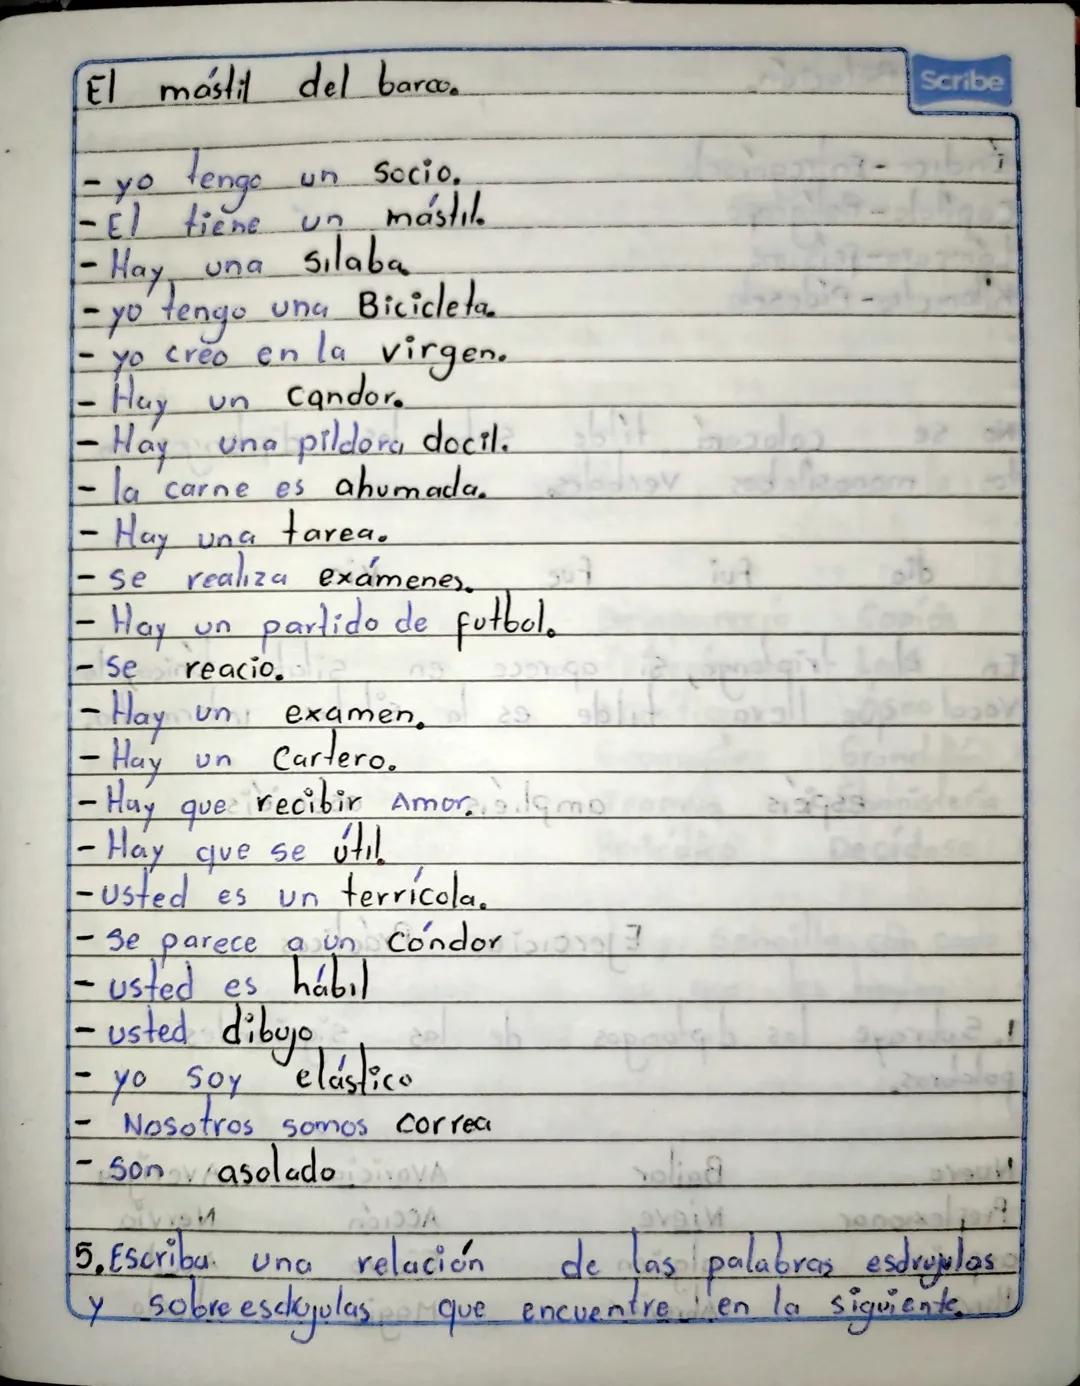 Scribe
El mástil del barco.
- yo tengo un socio.
- El tiene un mástil.
- Hay una silaba
- yo tengo una Bicicleta.
- yo creo en la virgen.
- Hay un candor.
- Hay una píldora docil.
- la carne es ahumada.
- Hay una tarea.
- se realiza exámenes.
- Hay un partido de futbol.
- se reacio.
- Hay un examen.
- Hay un Cartero.
- Hay que recibir Amor.
- Hay que se útil
- usted es un terrícola.
- se parece a un Cóndor
- usted es hábil
- usted dibujo
- yo soy elástico
- Nosotros somos correa
- son asolado
5. Escriba una relación de las palabras esdrujulas
y sobre esdrujulas que encuentre en la siguiente.